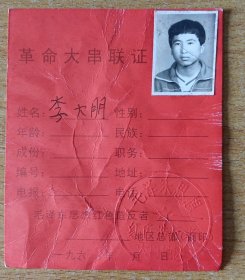 革命大串联证
姓名：李大明 性别：
年龄： 民族：
成份： 职务：
编号： 地址：
电报： 电话：
毛泽东思想红色造反者
地区总部
一九六 年 月 日